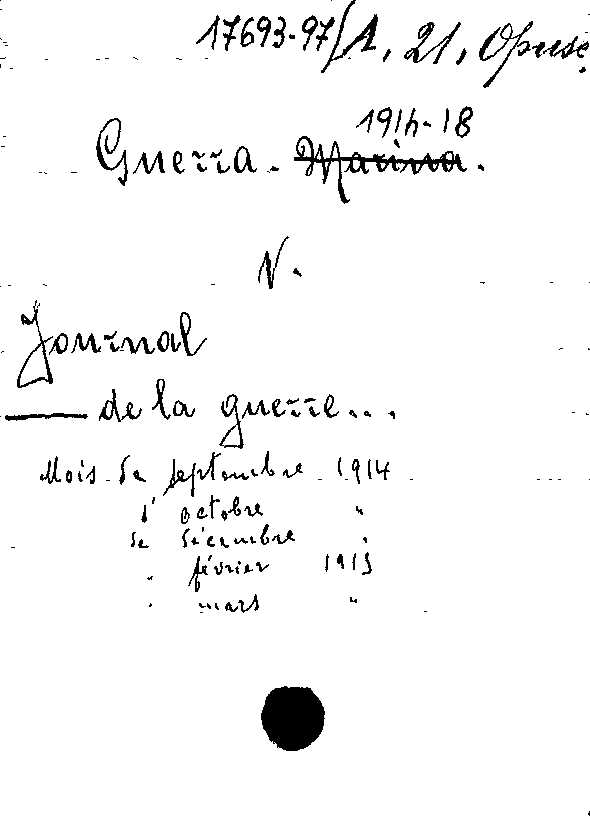 17693-97/A, 21, Opusc.
1914-18
Guerra. Marina.
V.
Journal
—— de la guerre...
Mois de septembre 1914
d'octobre "
de décembre "
" février 1915
" mars "